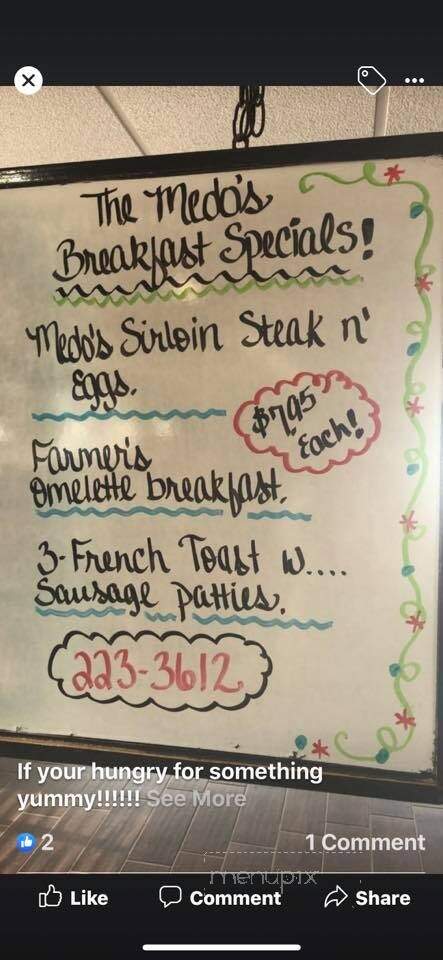 The Medo's
Breakfast Specials!
Medo's Sirloin Steak n'
Eggs.
$7.95
Each!
Farmer's
Omelette breakfast.
3-French Toast w....
Sausage patties.
223-3612
If your hungry for something
yummy!!!!!! See More
2
1 Comment
menupix
Like
Comment
Share